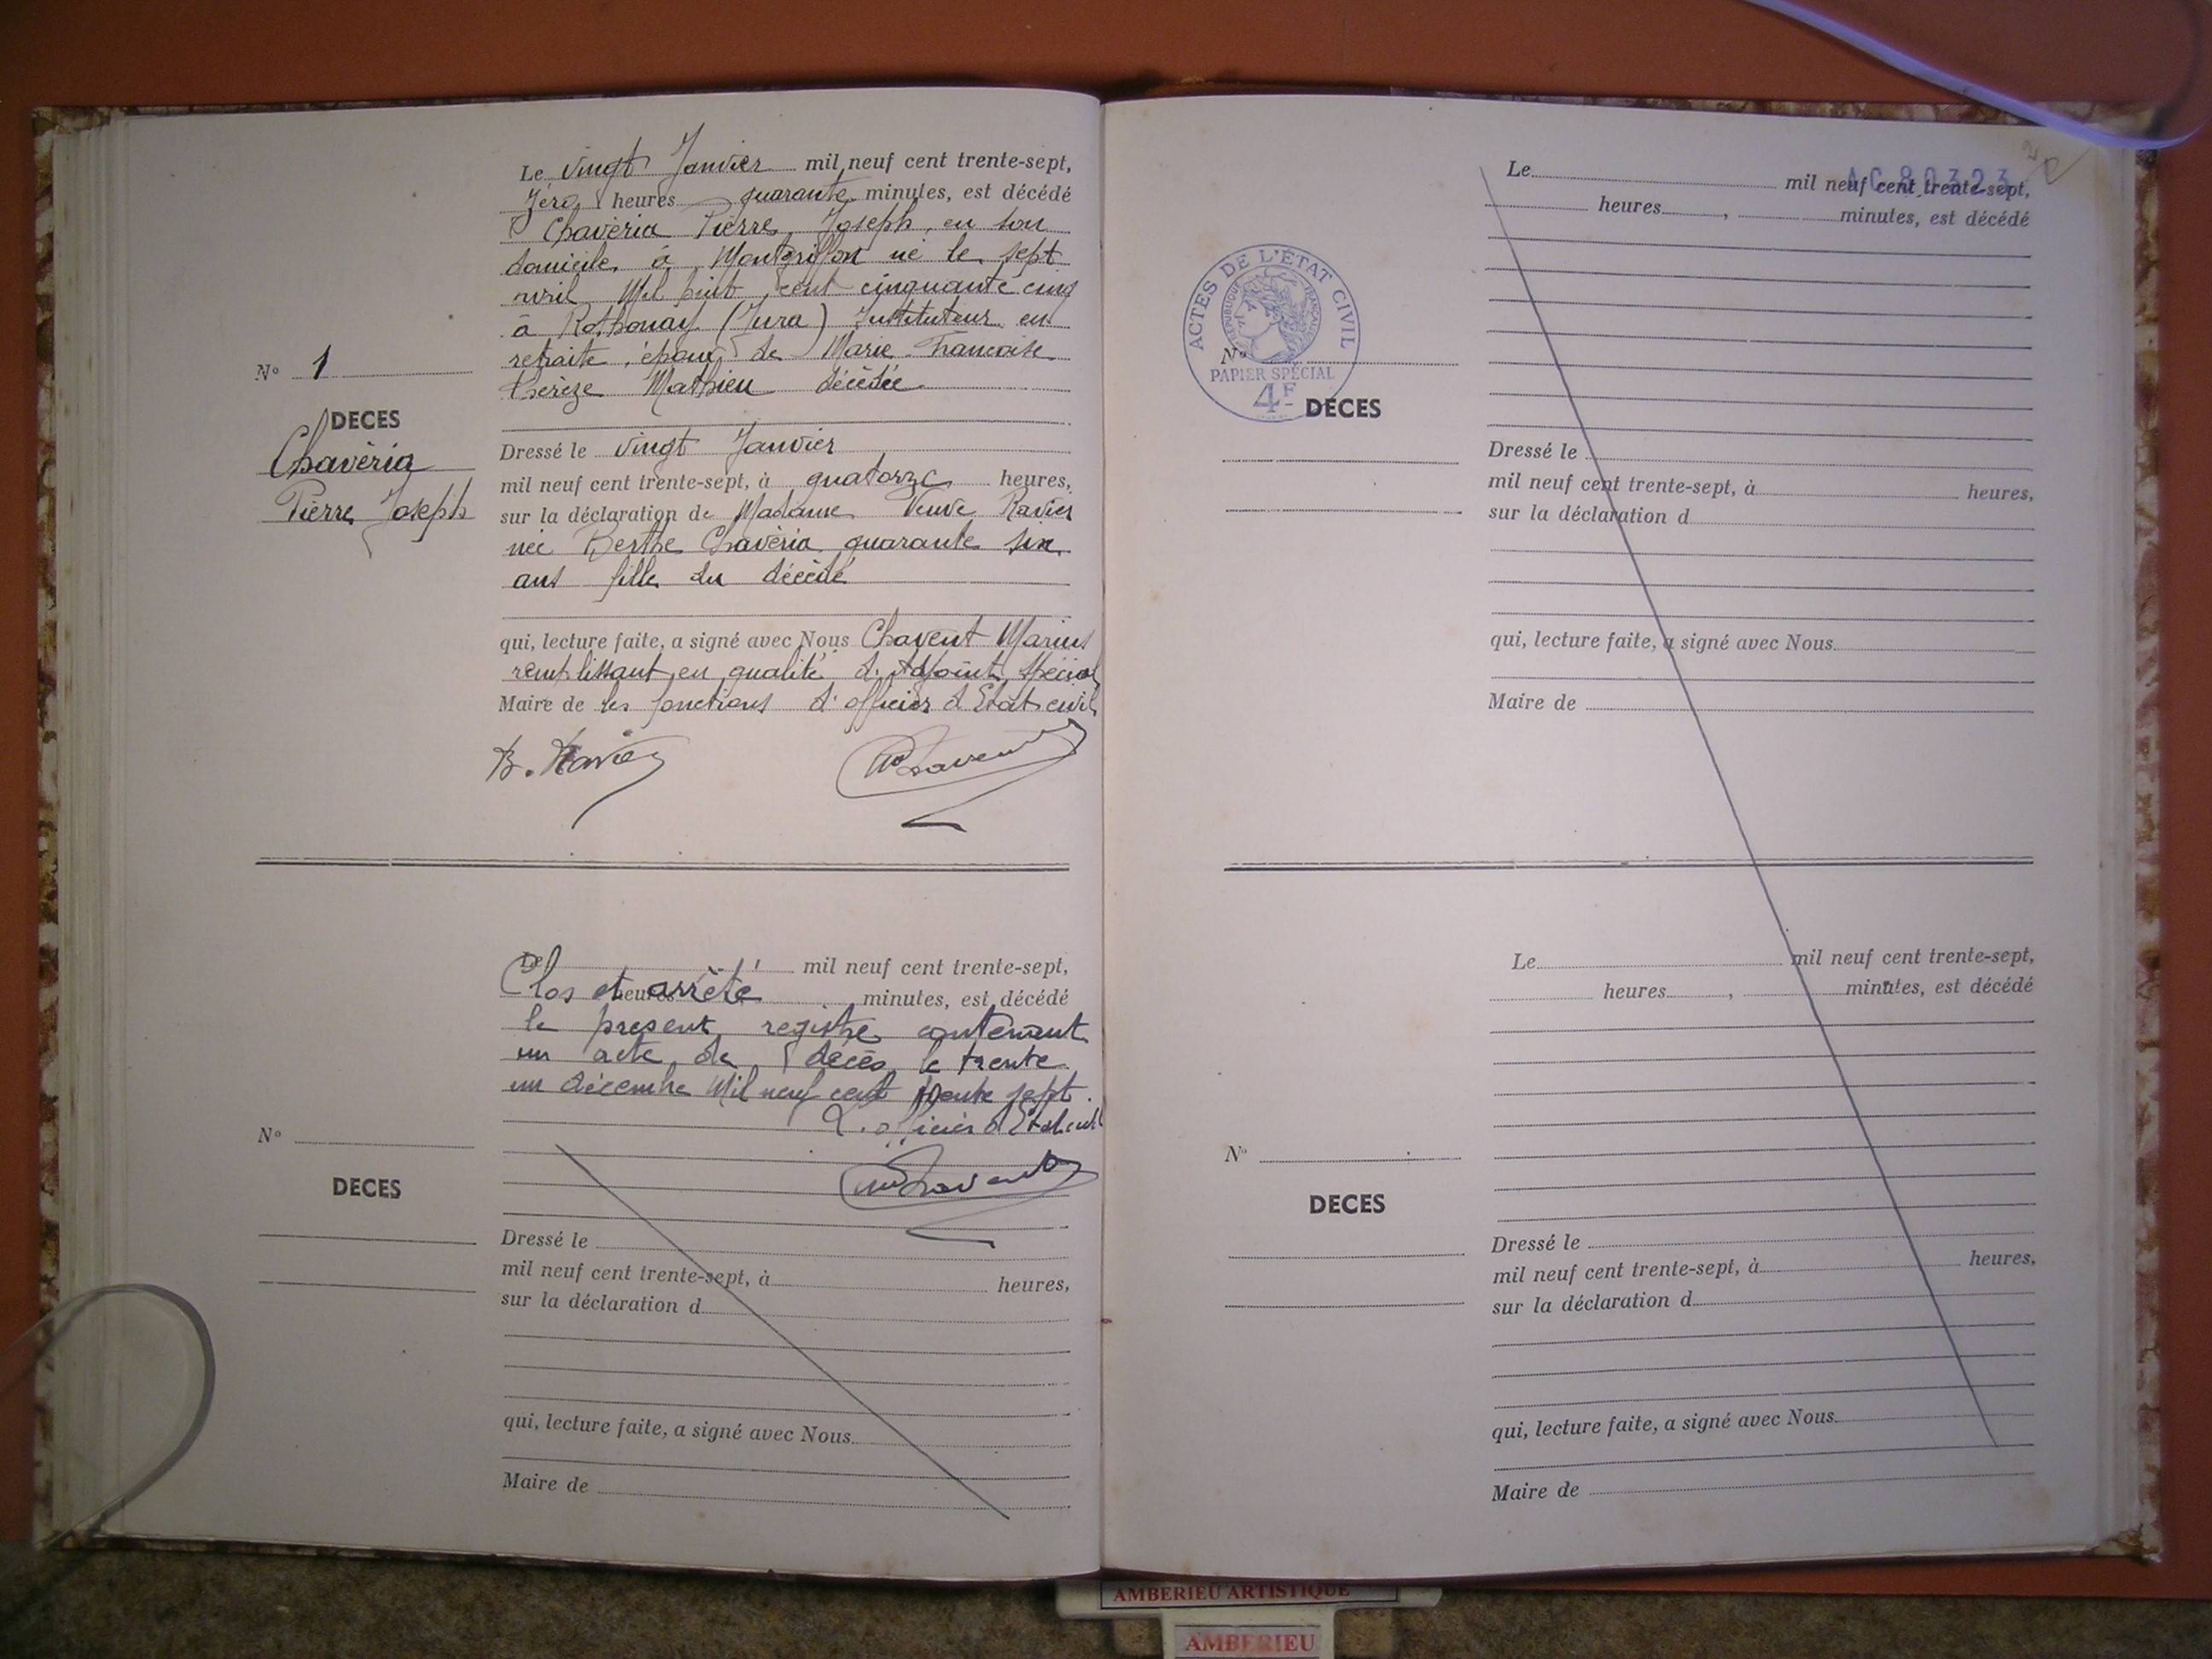 Le vingt Janvier mil neuf cent trente-sept,
Zéro heures quarante minutes, est décédé
Chavèria Pierre Joseph, en son
domicile à Montgriffon né le sept
avril Mil huit cent cinquante cinq
à Rothonay (Jura) Instituteur en
retraite, époux de Marie Francoise
Thérèze Mathieu décédée
N° 1
DECES
Chavèria
Pierre Joseph
Dressé le vingt Janvier
mil neuf cent trente-sept, à quatorze heures,
sur la déclaration de Madame Veuve Ravier
née Berthe Chavèria quarante six
ans fille du décédé
qui, lecture faite, a signé avec Nous Chavent Marius
remplissant en qualité d'Adjoint Spécial
Maire de les fonctions d'officier d'Etat civil
B. Ravier
M Chavent
Le mil neuf cent trente-sept,
Clos et arrêté
heures minutes, est décédé
le present registre contenant
un acte de décès le trente
un décembre Mil neuf cent trente sept.
L'officier d'Etat civil
M Chavent
N°
DECES
Dressé le
mil neuf cent trente-sept, à heures,
sur la déclaration d
qui, lecture faite, a signé avec Nous
Maire de
AC 80323
Le mil neuf cent trente-sept,
heures, minutes, est décédé
ACTES DE L'ÉTAT CIVIL
REPUBLIQUE FRANÇAISE
N°
PAPIER SPÉCIAL
4F
DECES
Dressé le
mil neuf cent trente-sept, à heures,
sur la déclaration d
qui, lecture faite, a signé avec Nous
Maire de
Le mil neuf cent trente-sept,
heures, minutes, est décédé
N°
DECES
Dressé le
mil neuf cent trente-sept, à heures,
sur la déclaration d
qui, lecture faite, a signé avec Nous
Maire de
AMBERIEU ARTISTIQUE
AMBERIEU